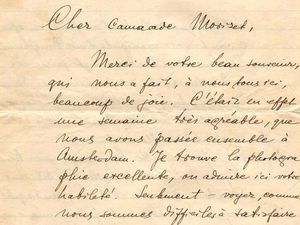 Cher Camarade Morizet,
Merci de votre beau souvenir,
qui nous a fait, à nous tous ici,
beaucoup de joie. C'était en effet
une semaine très agréable, que
nous avons passée ensemble à
Amsterdam. Je trouve la photogra
phie excellente, on admire ici votre
habileté. Seulement – voyez comme
nous sommes difficiles à satisfaire